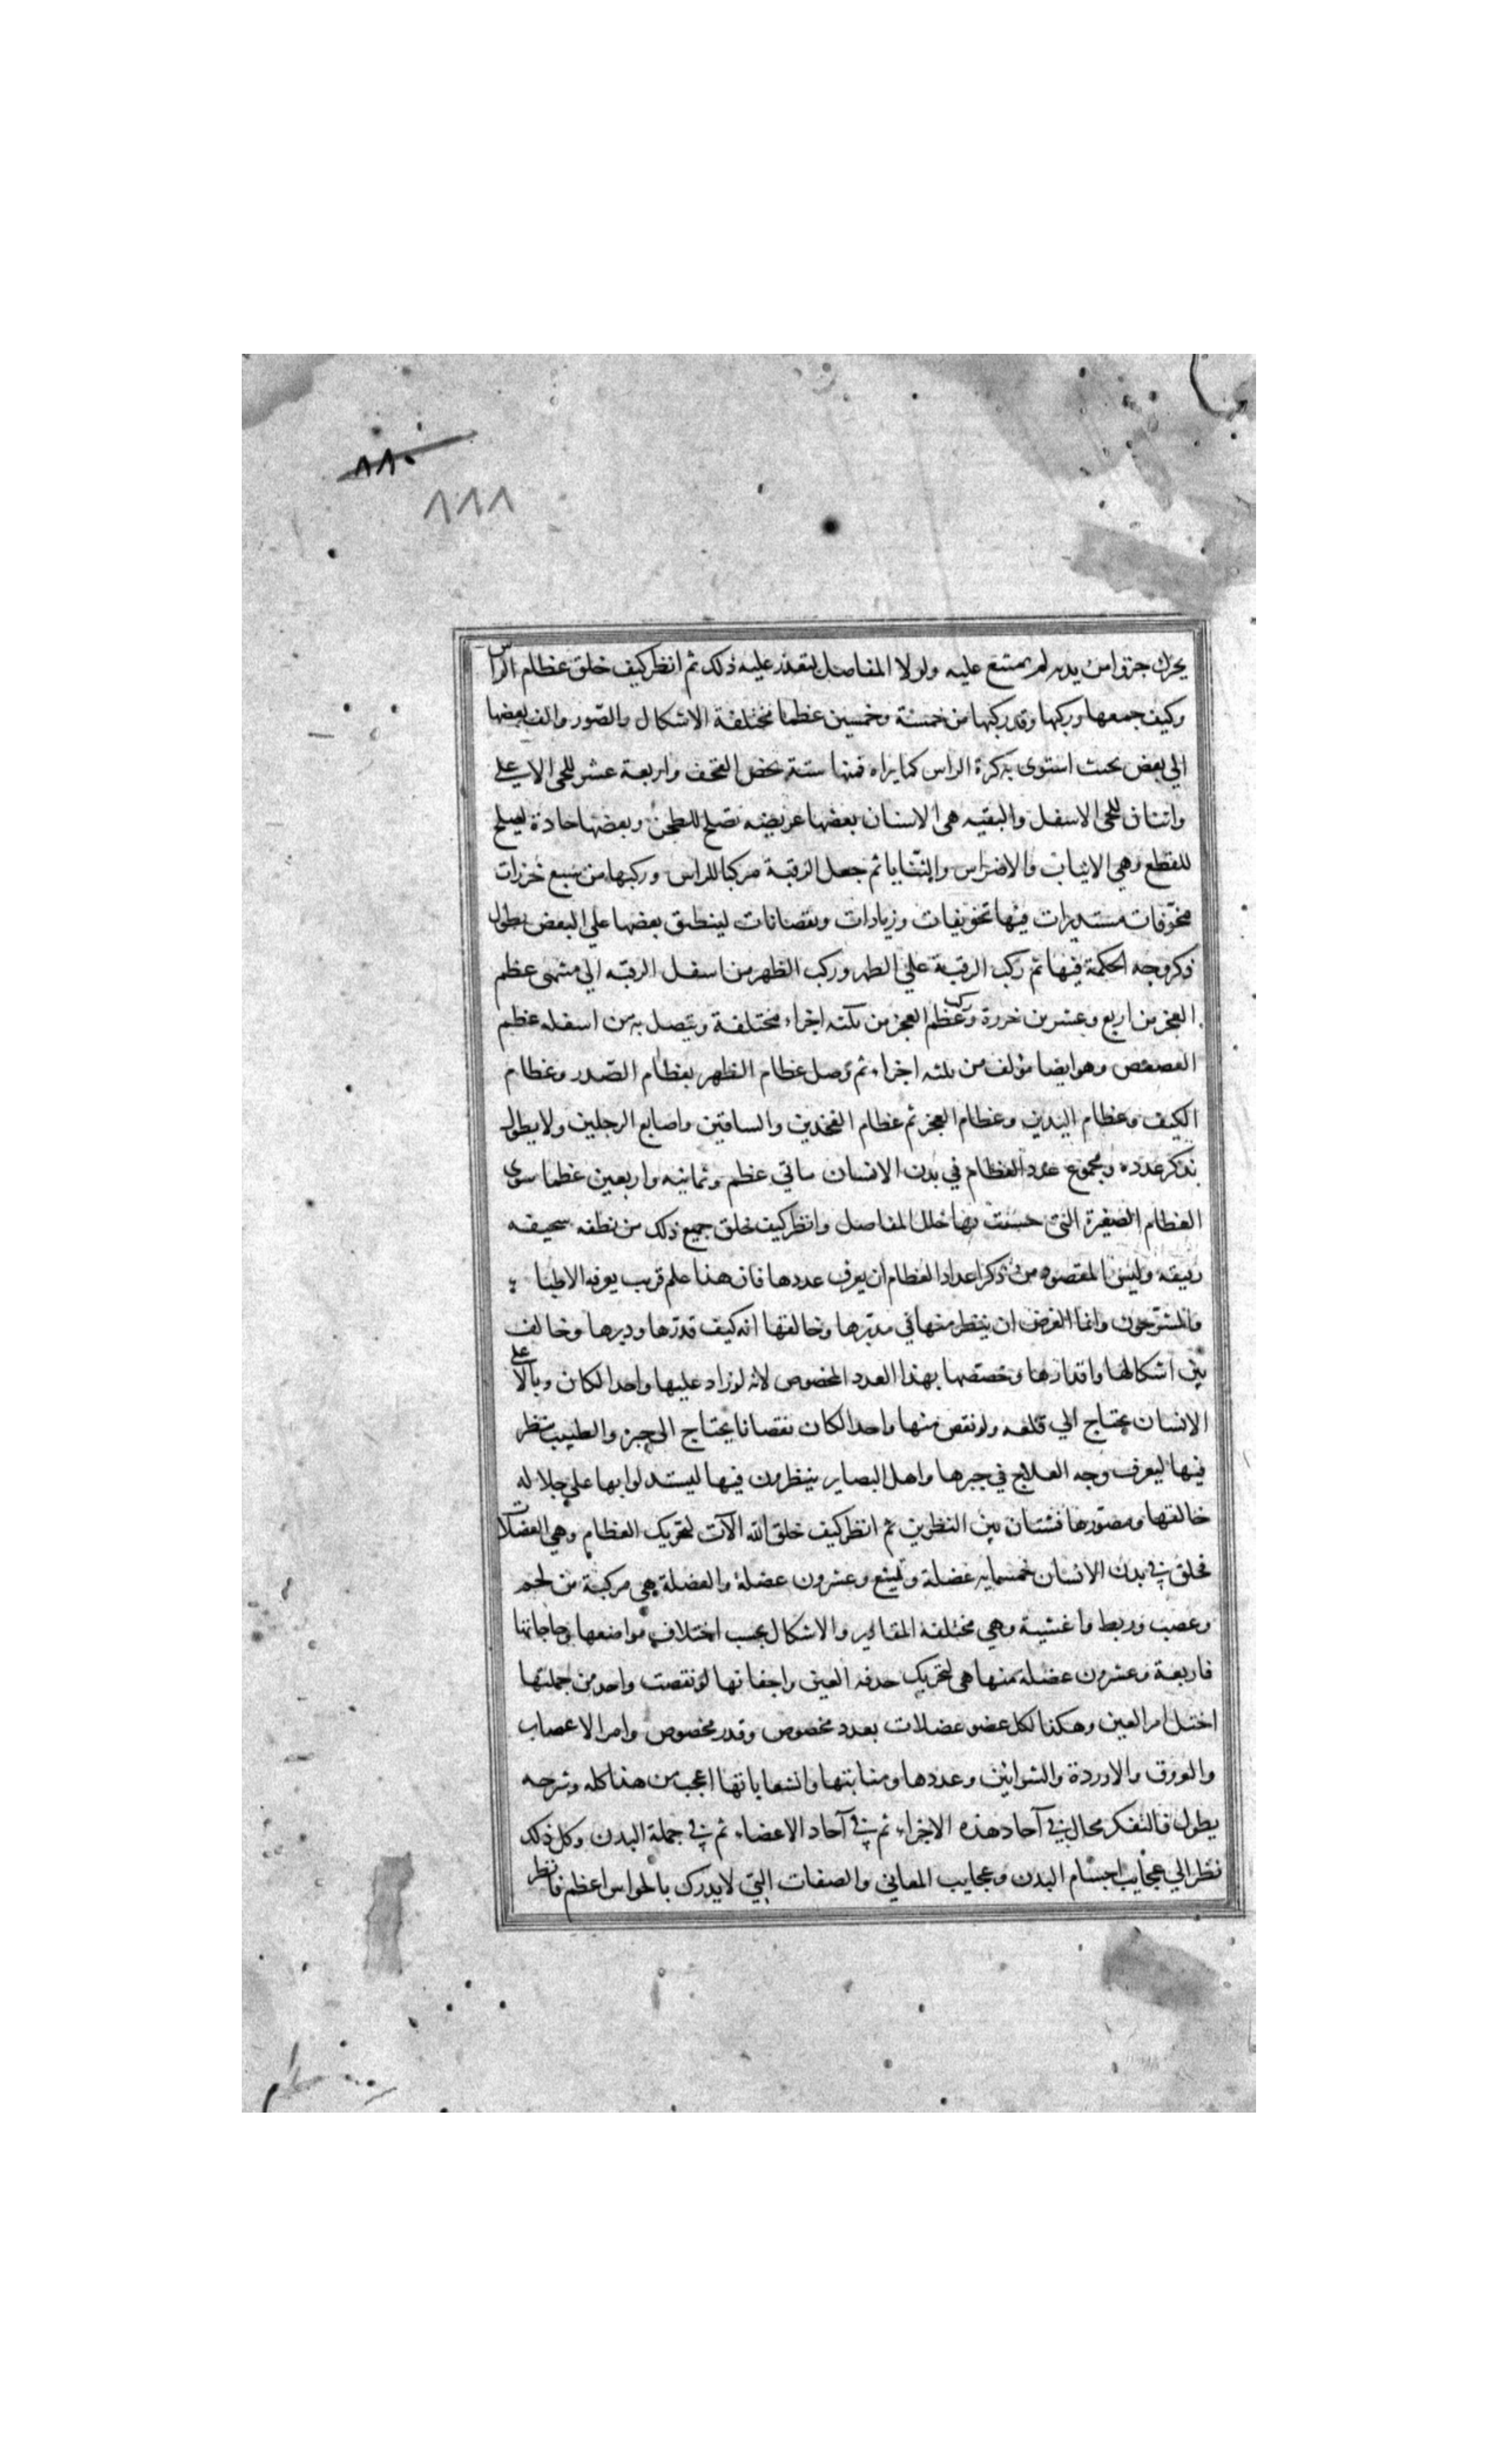 ٨٨٠
٨٨٨
يحرك جزوا من بدنه لم يمتنع عليه ولولا المفاصل لتعذر عليه ذلك ثم انظر كيف خلق عظام الراس
وكيف جمعها وركبها وقد ركبها من خمسة وخمسين عظما مختلفة الاشكال والصّور والف بعضها
الي بعض بحيث استوي به كرة الراس كما يراه فمنها ستة يخص القحف واربعة عشر للحي الاعلي
واثنان للحي الاسفل والبقيه هي الاسنان بعضها عريضه تصلح للطحن وبعضها حادة تصلح
للقطع وهي الانياب والاضراس والثنايا ثم جعل الرقبة مركبا للراس وركبها من سبع خرزات
مجوّفات مستديرات فيها تحويفات وزيادات ونقصانات لينطبق بعضها علي البعض يطول
ذكر وجه الحكمة فيها ثم ركب الرقبة علي الظهر وركب الظهر من اسفل الرقبه الي منتهي عظم
العجز من اربع وعشرين خرزة وركب عظم العجز من ثلثه اجزاء مختلفة ويتصل به من اسفله عظم
العصعص وهو ايضا مؤلف من ثلثه اجزاء ثم وصل عظام الظهر بعظام الصّدر وعظام
الكتف وعظام اليدين وعظام العجز ثم عظام الفخذين والساقين واصابع الرجلين ولا يطول
بذكر عدده ومجموع عدد العظام في بدن الانسان ماتي عظم وثمانيه واربعين عظما سوي
العظام الصغيرة التي حسيت بها خلل المفاصل وانظر كيف خلق جميع ذلك من نطفه سحيفه
رقيقه وليس المقصود من ذكر اعداد العظام ان يعرف عددها فان هذا علم قريب يعرفه الاطبا
والمشرّحون وانما الغرض ان ينظر منها في مدبّرها وخالقها انه كيف قدّرها ودبرها وخالف
بين اشكالها واقدارها وخصّصها بهذا العدد المخصوص لانه لو زاد عليها واحدا لكان وبالا علي
الانسان يحتاج الي قلعه ولو نقص منها واحدا لكان نقصانا يحتاج الي جبره والطبيب ينظر
فيها ليعرف وجه العلاج في جبرها واهل البصاير ينظرون فيها ليستدلوا بها علي جلاله
خالقها ومصّورها فشتان بين النظرين ثم انظر كيف خلق الله الآت لتحريك العظام وهي العضلات
فخلق في بدن الانسان خمسمايه عضلة وتسع وعشرون عضلة والعضلة هي مركبة من لحم
وعصب وربط واغشية وهي مختلفة المقادير والاشكال بحسب اختلاف مواضعها وحاجاتها
فاربعة وعشرون عضلة منها هي لتحريك حدقه العين واجفانها لو نقصت واحد من جملتها
اختل امر العين وهكذا لكل عضو عضلات بعدد مخصوص وقدر مخصوص وامر الاعصاب
والعروق والاوردة والشرائين وعددها ومنابتها وانشعاباتها اعجب من هذا كله وشرحه
يطول فالتفكر مجال في آحاد هذه الاجزاء ثم في آحاد الاعضاء ثم في جملة البدن وكل ذلك
نظر الي عجايب اجسام البدن وعجايب المعاني والصفات التي لا يدرك بالحواس اعظم فانظر